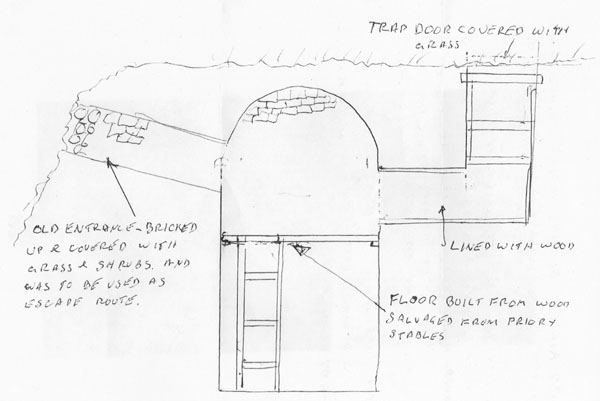 TRAP DOOR COVERED WITH
GRASS
OLD ENTRANCE - BRICKED
UP & COVERED WITH
GRASS & SHRUBS. AND
WAS TO BE USED AS
ESCAPE ROUTE.
LINED WITH WOOD
FLOOR BUILT FROM WOOD
SALVAGED FROM PRIORY
STABLES